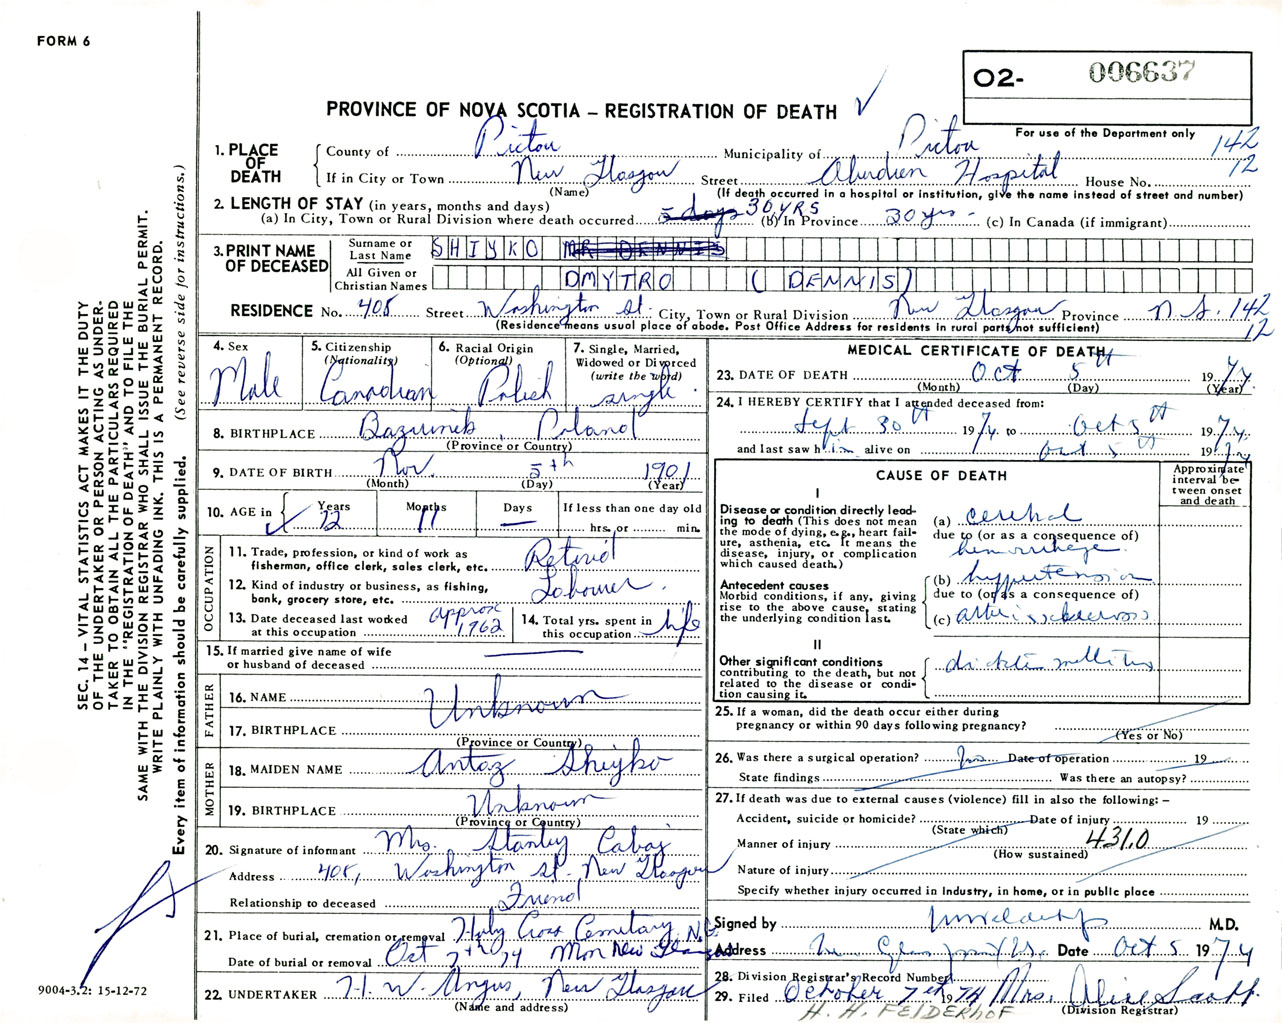 FORM 6
O2- 006637
For use of the Department only
PROVINCE OF NOVA SCOTIA – REGISTRATION OF DEATH ✓
1. PLACE OF DEATH
County of Pictou Municipality of Pictou 142
If in City or Town New Glasgow Street Aberdeen Hospital House No. 12
(Name) (If death occurred in a hospital or institution, give the name instead of street and number)
2. LENGTH OF STAY (in years, months and days)
(a) In City, Town or Rural Division where death occurred 5 days 30 YRS (b) In Province 30 yrs - (c) In Canada (if immigrant)
3. PRINT NAME OF DECEASED
Surname or Last Name SHIYKO MR DENNIS
All Given or Christian Names DMYTRO (DENNIS)
RESIDENCE No. 408 Street Washington St. City, Town or Rural Division New Glasgow Province N.S. 142
(Residence means usual place of abode. Post Office Address for residents in rural parts not sufficient) 12
4. Sex Male
5. Citizenship (Nationality) Canadian
6. Racial Origin (Optional) Polish
7. Single, Married, Widowed or Divorced (write the word) single
8. BIRTHPLACE Poland
(Province or Country)
9. DATE OF BIRTH Nov. 5th 1901
(Month) (Day) (Year)
10. AGE in Years 72 Months 11 Days — If less than one day old
hrs. or min.
OCCUPATION
11. Trade, profession, or kind of work as fisherman, office clerk, sales clerk, etc. Retired
12. Kind of industry or business, as fishing, bank, grocery store, etc. Labourer.
13. Date deceased last worked at this occupation approx 1962
14. Total yrs. spent in this occupation life
15. If married give name of wife or husband of deceased —
FATHER
16. NAME Unknown
17. BIRTHPLACE
(Province or Country)
MOTHER
18. MAIDEN NAME Antaz Shiyko
19. BIRTHPLACE Unknown
(Province or Country)
20. Signature of informant Mrs. Stanley Cabaj
Address 408, Washington St. New Glasgow
Relationship to deceased Friend
21. Place of burial, cremation or removal Holy Cross Cemetary, N.G.
Date of burial or removal Oct 7th 74 Mon New Glasgow
22. UNDERTAKER H. W. Angus, New Glasgow
(Name and address)
MEDICAL CERTIFICATE OF DEATH
23. DATE OF DEATH Oct 5th 1974
(Month) (Day) (Year)
24. I HEREBY CERTIFY that I attended deceased from:
Sept 30th 1974 to Oct 5th 1974
and last saw him alive on Oct 5th 1974
CAUSE OF DEATH
Approximate interval between onset and death
I
Disease or condition directly leading to death (This does not mean the mode of dying, e.g., heart failure, asthenia, etc. It means the disease, injury, or complication which caused death.)
(a) cerebral
due to (or as a consequence of)
hemorrhage
Antecedent causes
Morbid conditions, if any, giving rise to the above cause, stating the underlying condition last.
(b) hypertension
due to (or as a consequence of)
(c) arteriosclerosis
II
Other significant conditions contributing to the death, but not related to the disease or condition causing it.
mellitus
25. If a woman, did the death occur either during pregnancy or within 90 days following pregnancy?
(Yes or No)
26. Was there a surgical operation? No Date of operation 19
State findings Was there an autopsy?
27. If death was due to external causes (violence) fill in also the following: –
Accident, suicide or homicide? Date of injury 19
(State which)
Manner of injury 431.0
(How sustained)
Nature of injury
Specify whether injury occurred in Industry, in home, or in public place
Signed by M.D.
Address New Glasgow N.S. Date Oct 5 1974
28. Division Registrar's Record Number
29. Filed October 7th 1974 Mrs. Alice Scott.
(Division Registrar)
H. H. FELDERHOF
SEC. 14 – VITAL STATISTICS ACT MAKES IT THE DUTY
OF THE UNDERTAKER OR PERSON ACTING AS UNDER-
TAKER TO OBTAIN ALL THE PARTICULARS REQUIRED
IN THE "REGISTRATION OF DEATH" AND TO FILE THE
SAME WITH THE DIVISION REGISTRAR WHO SHALL ISSUE THE BURIAL PERMIT.
WRITE PLAINLY WITH UNFADING INK. THIS IS A PERMANENT RECORD.
Every item of information should be carefully supplied. (See reverse side for instructions.)
9004-3.2: 15-12-72